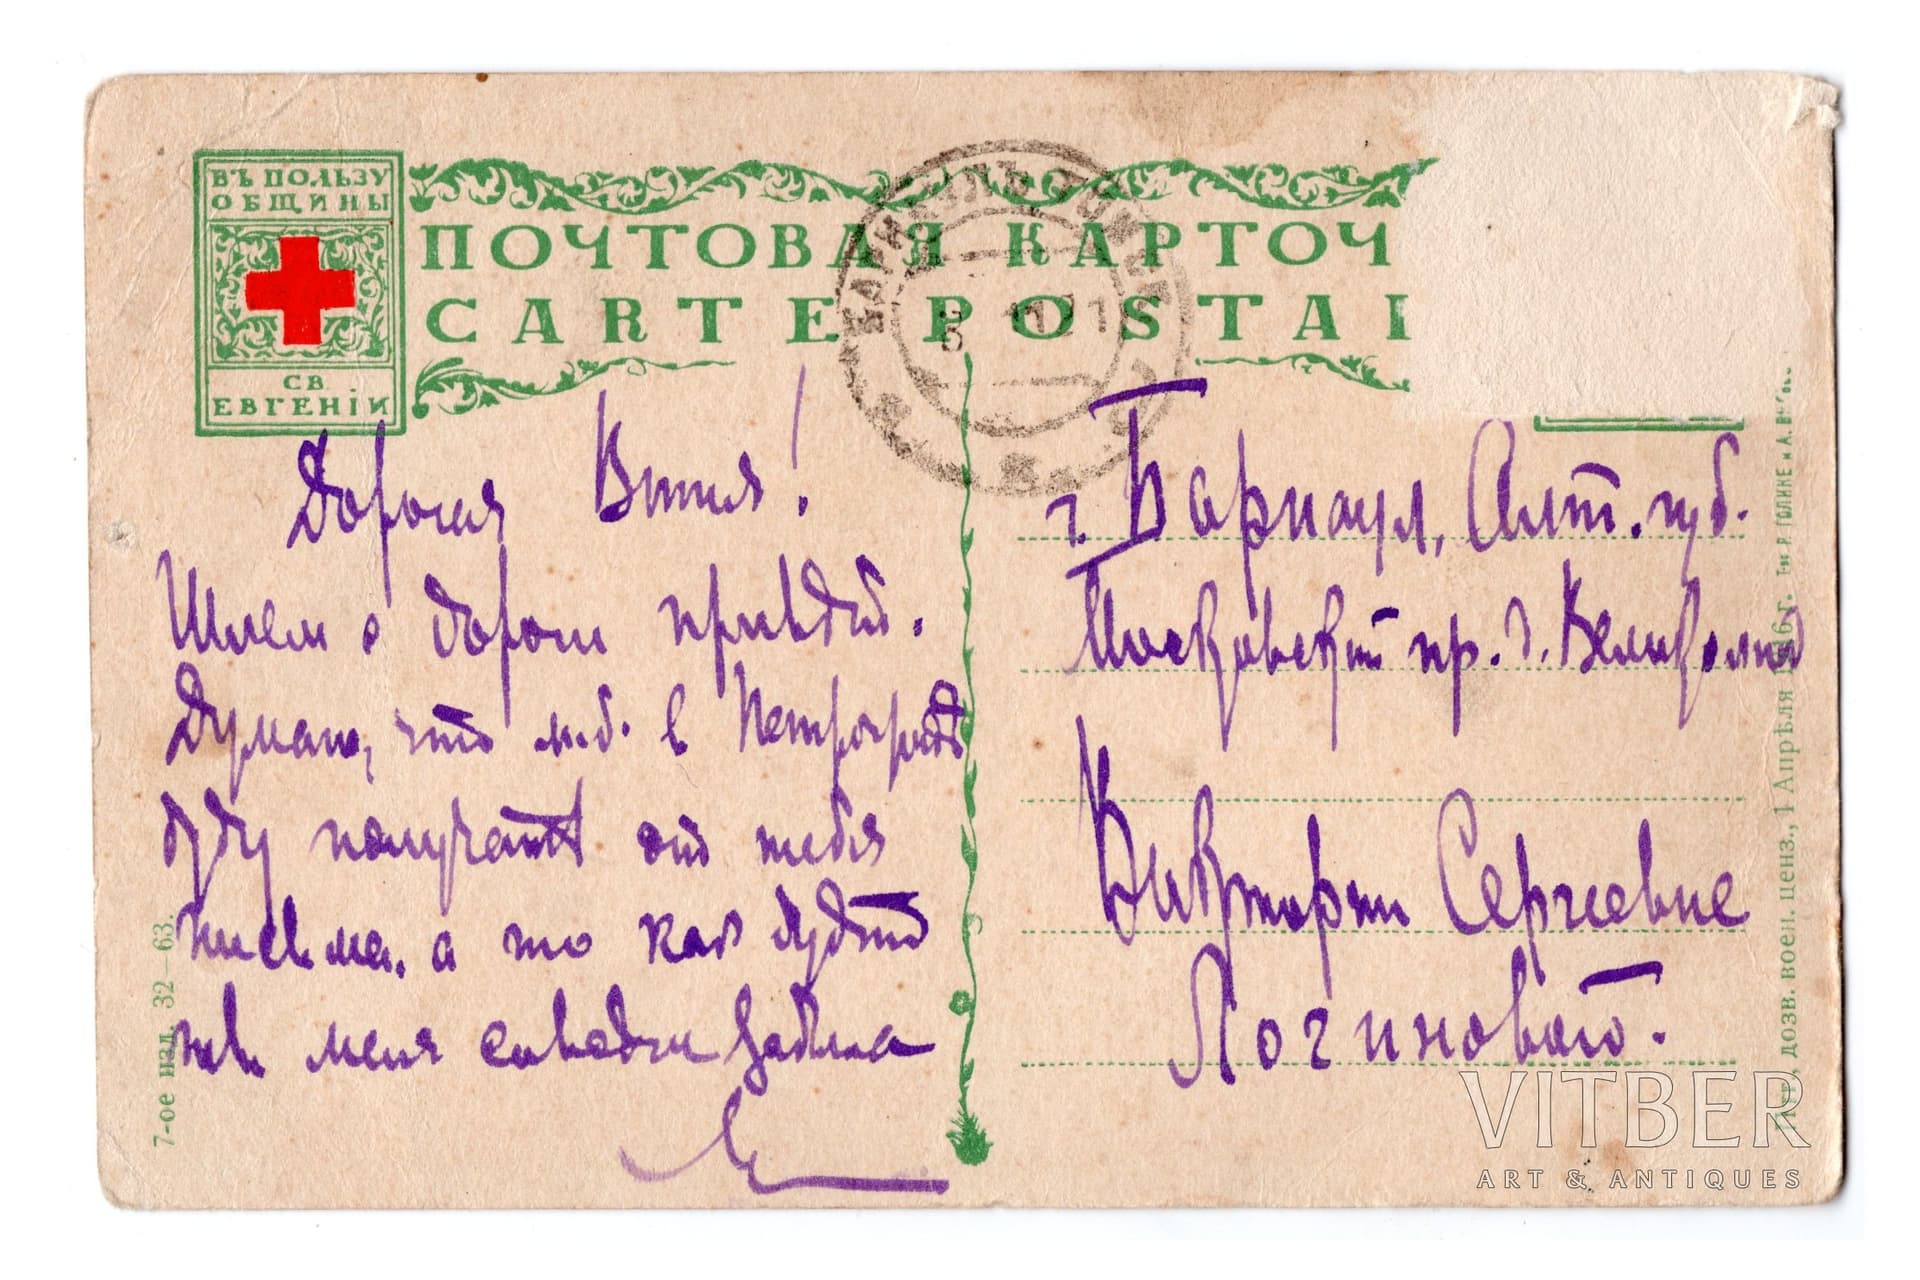 ВЪ ПОЛЬЗУ
ОБЩИНЫ
СВ.
ЕВГЕНІИ
ПОЧТОВАЯ КАРТОЧ
CARTE POSTAL
БАРНАУЛЪ ТОМСК
Дорогая Витя!
Шлем с дороги привет.
Думаю, что м.б. в Петрограде
буду получать от тебя
письма, а то как будто
ты меня совсем забыла
г. Барнаул, Алт. губ.
Московский пр. д.
Виктории Сергеевне
Логиновой.
7-ое изд. 32—63.
дозв. воен. ценз., 1 Апрѣля 1916 г. Т-во Р. ГОЛИКЕ и А.
VITBER
ART & ANTIQUES